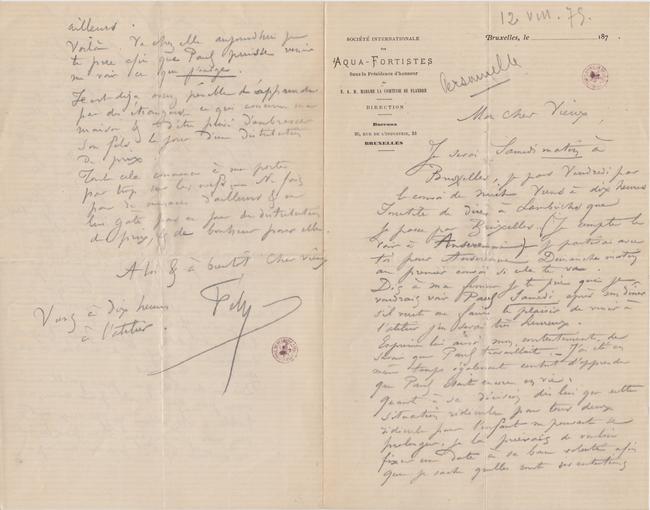 12 VIII. 79.
SOCIÉTÉ INTERNATIONALE
DES
AQUA-FORTISTES
Sous la Présidence d'honneur
DE
S. A. R. MADAME LA COMTESSE DE FLANDRE
DIRECTION
Bureaux
RUE DE L'INDUSTRIE,
BRUXELLES
Bruxelles, le 187
Personnelle
Mon cher Vieux
Je serai Samedi matin à
Bruxelles, je pars Vendredi par
le convoi de minuit. Viens à dix heures
Inutile de dire à que
Je passe par Bruxelles (Je compte le
voir à Anseremme) Je partirai avec
toi pour Anseremme Dimanche matin
au premier convoi si cela te va.
Dis à ma femme je te prie que je
voudrais voir Paul Samedi après son dîner
s'il veut me faire le plaisir de venir à
l'atelier j'en serai très heureux.
Exprime lui aussi mon contentement de
savoir que Paul travaillait. J'ai été en
même temps également content d'apprendre
que Paul était encore en vie.
Quant à sa décision dis lui que cette
situation ridicule pour tous deux
ridicule pour l'enfant ne pouvant se
prolonger, je la prierais de vouloir
fixer une date à sa bonne volonté afin
que je sache quelles sont ses intentions
ailleurs.
Voilà. Va chez elle aujourd'hui je
te prie afin que Paul puisse venir
me voir
Il est déjà assez pénible d'apprendre
par des étrangers ce qui concerne ma
maison & d'être privé d'embrasser
son fils le jour d'une distribution
de prix
Tout cela commence à me porter
par trop sur les nerfs. Ne fais
pas de menaces d'ailleurs & ne
lui gâte pas ce jour de distribution
de prix, & de bonheur pour elle.
A toi & à bientôt cher vieux
Fély
Viens à dix heures
à l'atelier.